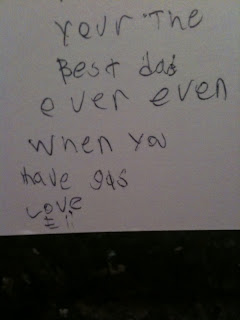 Your The
Best dad
ever even
when you
have gas
Love
Eli